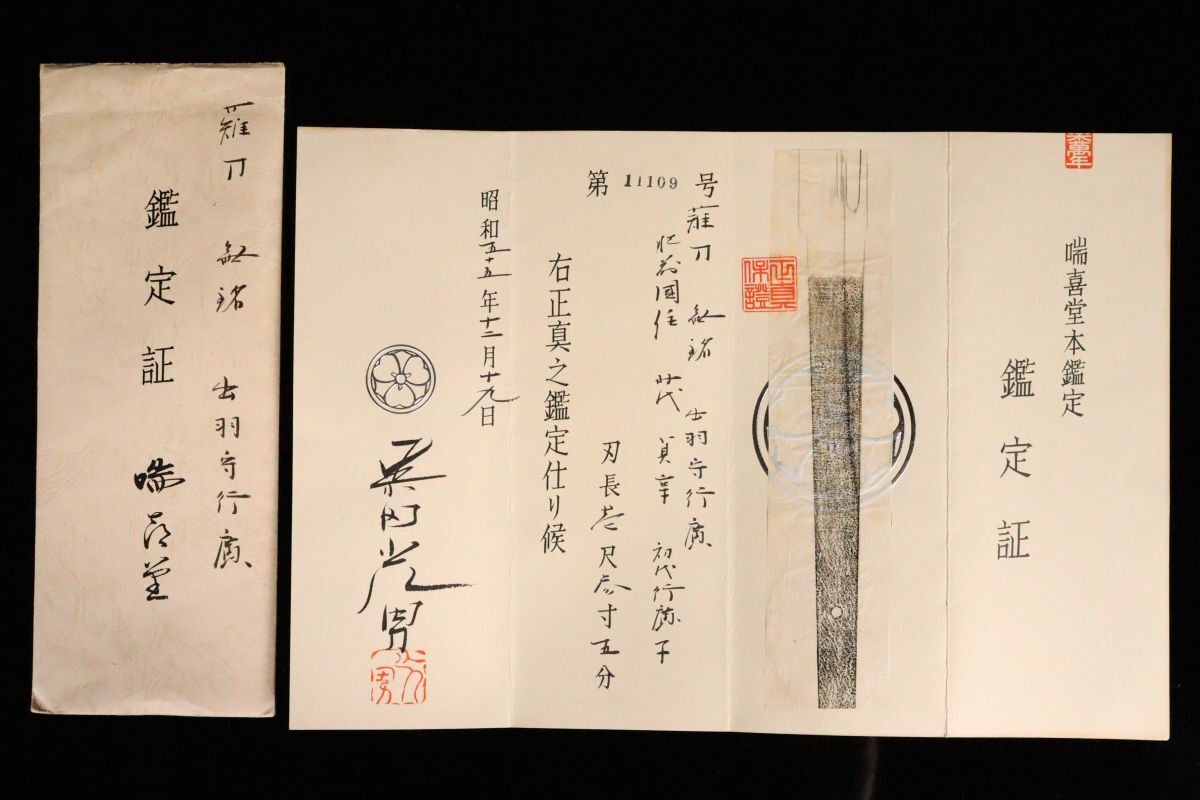 喘喜堂本鑑定
鑑定証
正真
保證
第 11109 号
薙刀 無銘 出羽守行廣
肥前國住 弐代 貞享 初代行廣子
刃長壱尺参寸五分
右正真之鑑定仕り候
昭和五十五年十二月十九日
柴田光男
光男
薙刀 無銘 出羽守行廣
鑑定証
喘喜堂